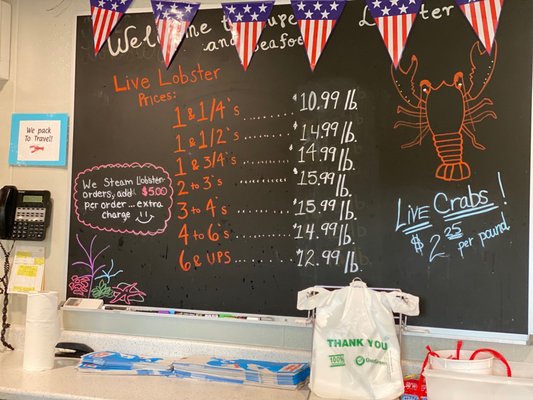 Welcome to
Lobster
and Seafood
Live Lobster
Prices:
1 & 1/4's ........ $10.99 lb.
1 & 1/2's ........ $14.99 lb.
1 & 3/4's ........ $14.99 lb.
2 to 3's ........ $15.99 lb.
3 to 4's ........ $15.99 lb.
4 to 6's ........ $14.99 lb.
6 & UPS ........ $12.99 lb.
We pack
to Travel!
We Steam Lobster
orders, add $5.00
per order...extra
charge
LIVE Crabs!
$2.25 per pound
THANK YOU
100%